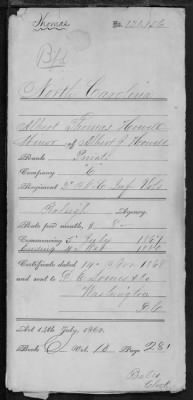 Thomas
No.
North Carolina
Albert Thomas Howell
Minor of Albert J. Howell
Rank Private
Company "E"
Regiment 3" N C Inf. Vols
Raleigh Agency.
Rate per month, $ 8
Commencing 5 July 1867
Ending
Certificate dated 14 Nov 1868
and sent to
Washington
D.C.
Act 14th July, 1862.
Book Vol. Page 28
Clerk.